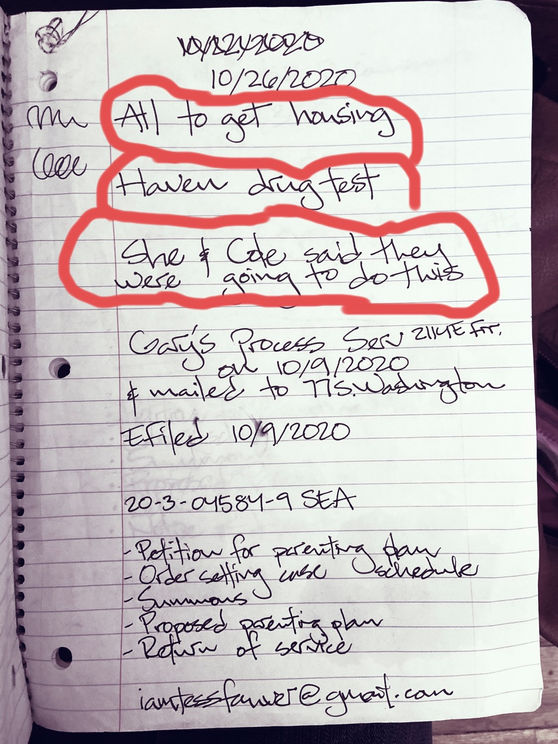 10/26/2020
All to get housing
Haven drug test
She & Cole said they
were going to do this
Gary's Process Serv
on 10/9/2020
& mailed to 77 S. Washington
Efiled 10/9/2020
20-3-04584-9 SEA
- Petition for parenting plan
- Order setting case schedule
- Summons
- Proposed parenting plan
- Return of service